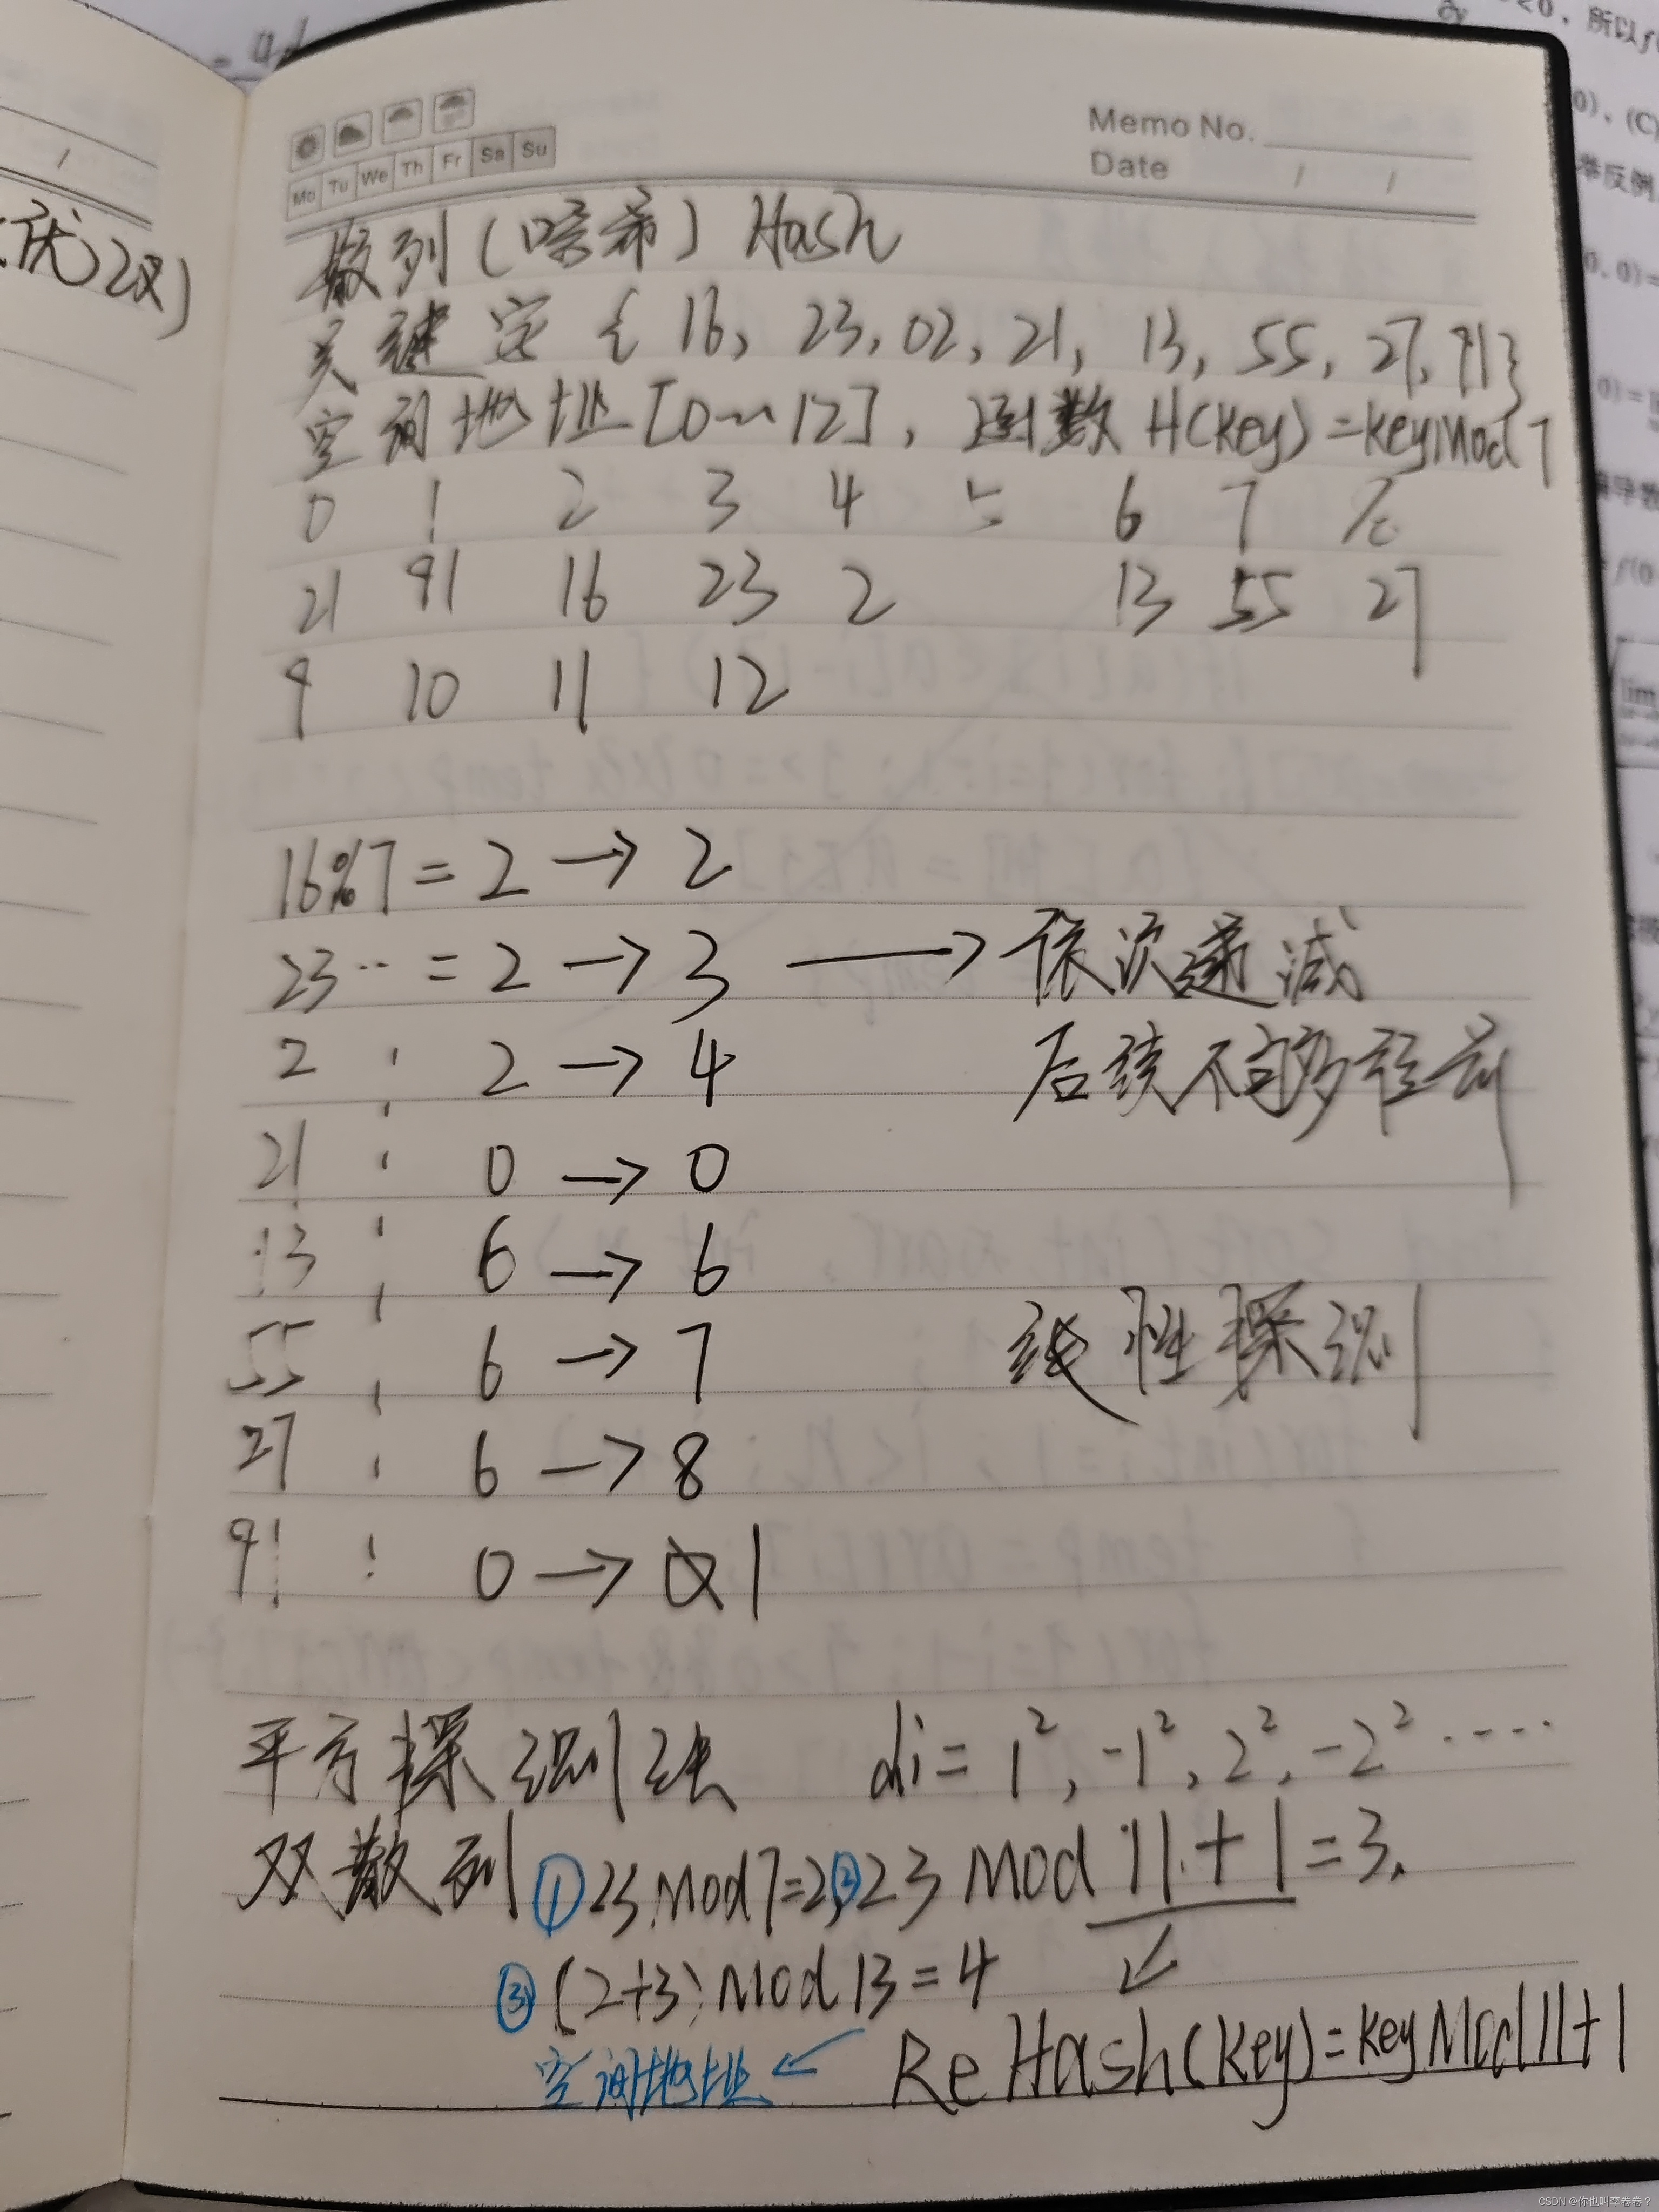 Memo No.
Date / /
Mo Tu We Th Fr Sa Su
散列(哈希) Hash
关键字 { 16, 23, 02, 21, 13, 55, 27, 91}
空间地址[0~12], 函数 H(key)=keyMod7
0 1 2 3 4 5 6 7 8
21 91 16 23 2 13 55 27
9 10 11 12
16%7 = 2 → 2
23·· = 2 → 3 → 依次递减
2 2 → 4 后续不够往前
21 0 → 0
13 6 → 6
55 6 → 7 线性探测
27 6 → 8
91 0 → 1
平方探测法 di = 1², -1², 2², -2² ····
双散列 ① 23 Mod7=2, ② 23 Mod 11+1=3.
③ (2+3) Mod 13 = 4
空间地址 ← ReHash(key)=key Mod 11+1
CSDN @你也叫李卷卷?